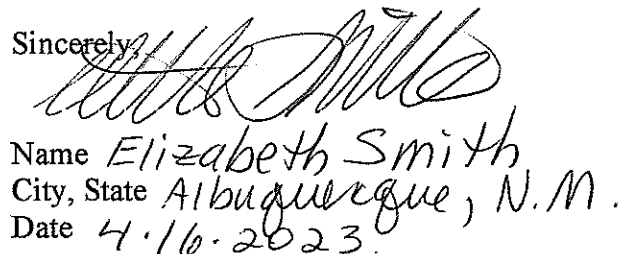 Sincerely,
Name Elizabeth Smith
City, State Albuquerque, N.M.
Date 4.16.2023.